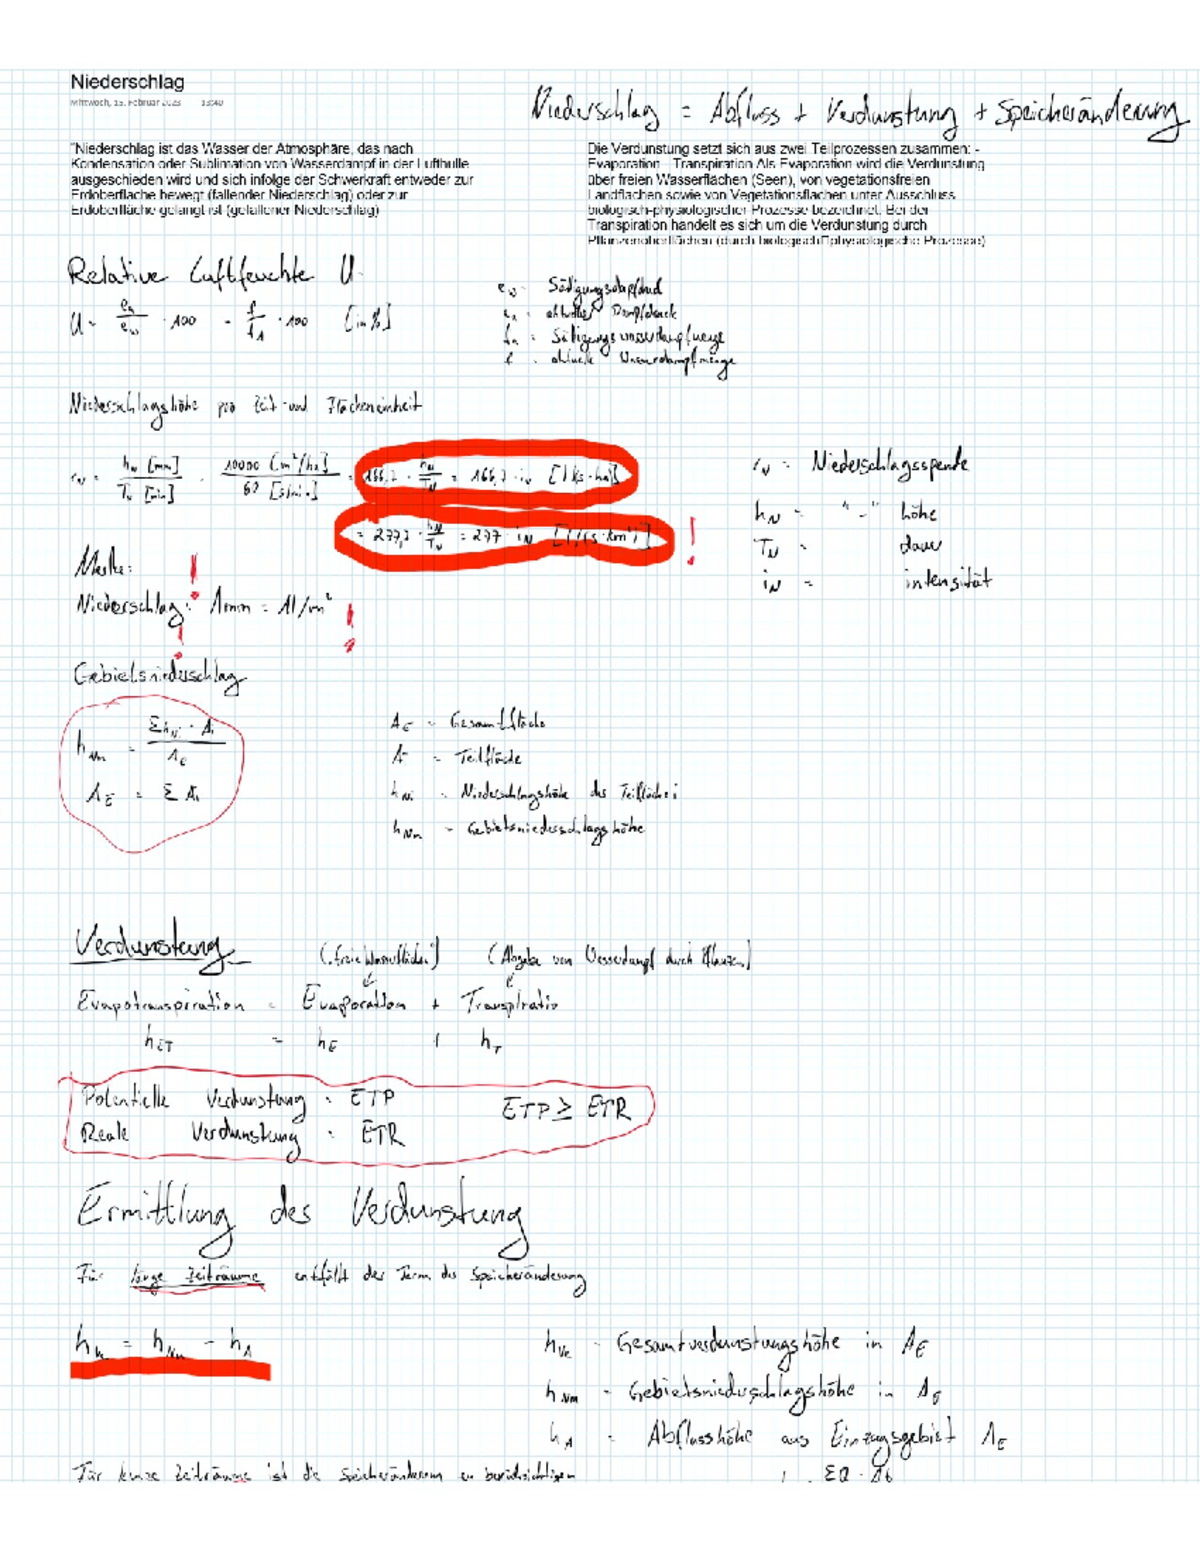 Niederschlag
Mittwoch, 15. Februar 2023 13:40
Niederschlag = Abfluss + Verdunstung + Speicheränderung
"Niederschlag ist das Wasser der Atmosphäre, das nach
Kondensation oder Sublimation von Wasserdampf in der Lufthülle
ausgeschieden wird und sich infolge der Schwerkraft entweder zur
Erdoberfläche bewegt (fallender Niederschlag) oder zur
Erdoberfläche gelangt ist (gefallener Niederschlag)
Die Verdunstung setzt sich aus zwei Teilprozessen zusammen: -
Evaporation - Transpiration Als Evaporation wird die Verdunstung
über freien Wasserflächen (Seen), von vegetationsfreien
Landflächen sowie von Vegetationsflächen unter Ausschluss
biologisch-physiologischer Prozesse bezeichnet. Bei der
Transpiration handelt es sich um die Verdunstung durch
Pflanzenoberflächen (durch biologisch physiologische Prozesse)
Relative Luftfeuchte U
U = e_a / e_w · 100 = f / f_A · 100 [in %]
e_w = Sädigungsdampfdruck
e_a = aktueller Dampfdruck
= Sättigungswasserdampfmenge
f = aktuelle Wasserdampfmenge
Niederschlagshöhe pro Zeit- und Flächeneinheit
r_N = h_N [mm] / T_N [min] · 10000 [m²/ha] / 60 [s/min] = 166,7 · h_N / T_N = 166,7 · i_N [l/(s·ha)]
= 277,7 · h_N / T_N = 277 · i_N [l/(s·km²)] !
r_N = Niederschlagsspende
h_N = " - " höhe
T_N = dauer
i_N = intensität
Merke: !
Niederschlag: 1mm = 1l/m² !
Gebietsniederschlag
h_Nm = Σh_Ni · A_i / A_E
A_E = Σ A_i
A_E = Gesamtfläche
A = Teilfläche
h_Ni = Niederschlagshöhe der Teilfläche i
h_Nm = Gebietsniederschlagshöhe
Verdunstung
(freie Wasserflächen) (Abgabe von Wasserdampf durch Pflanzen)
Evapotranspiration = Evaporation + Transpiratio
h_ET = h_E + h_T
Potentielle Verdunstung = ETP
Reale Verdunstung = ETR
ETP ≥ ETR
Ermittlung der Verdunstung
Für lange Zeiträume entfällt der Term der Speicheränderung
h_Ve = h_Nm - h_A
h_Ve = Gesamtverdunstungshöhe in A_E
h_Nm = Gebietsniederschlagshöhe in A_E
h_A = Abflusshöhe aus Einzugsgebiet A_E
Für kurze Zeiträume ist die Speicheränderung zu berücksichtigen
ΣQ · Δt